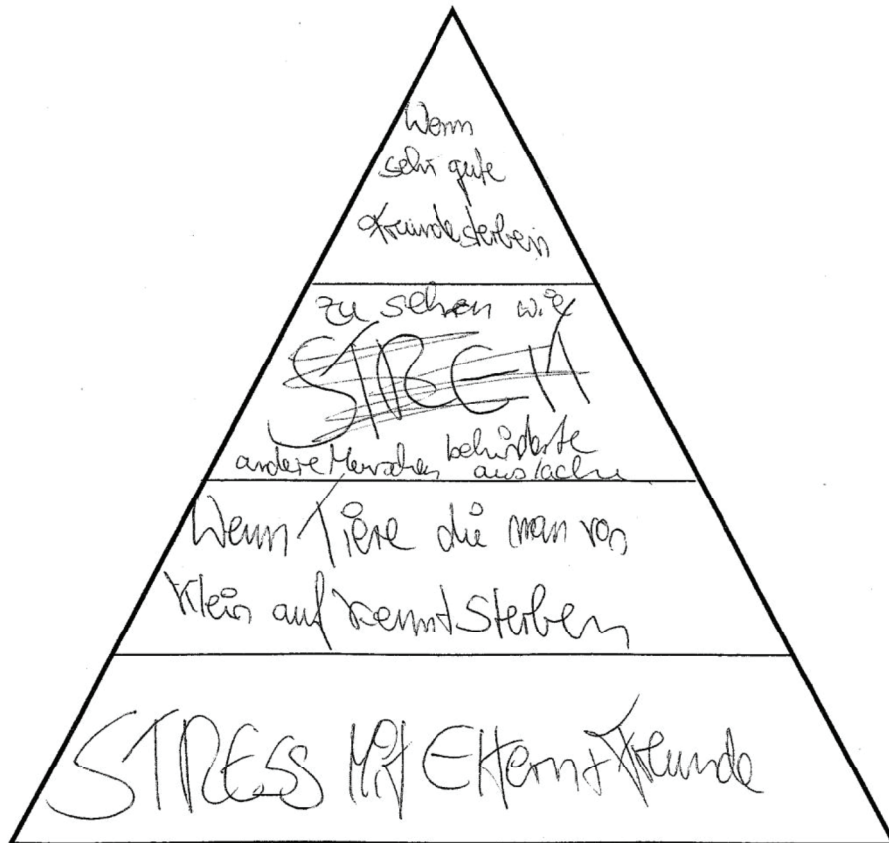 Wenn
sehr gute
Freunde sterben
zu sehen wie
andere Menschen behinderte
auslache
Wenn Tiere die man von
klein auf kennt sterben
STRESS Mit Eltern + Freunde